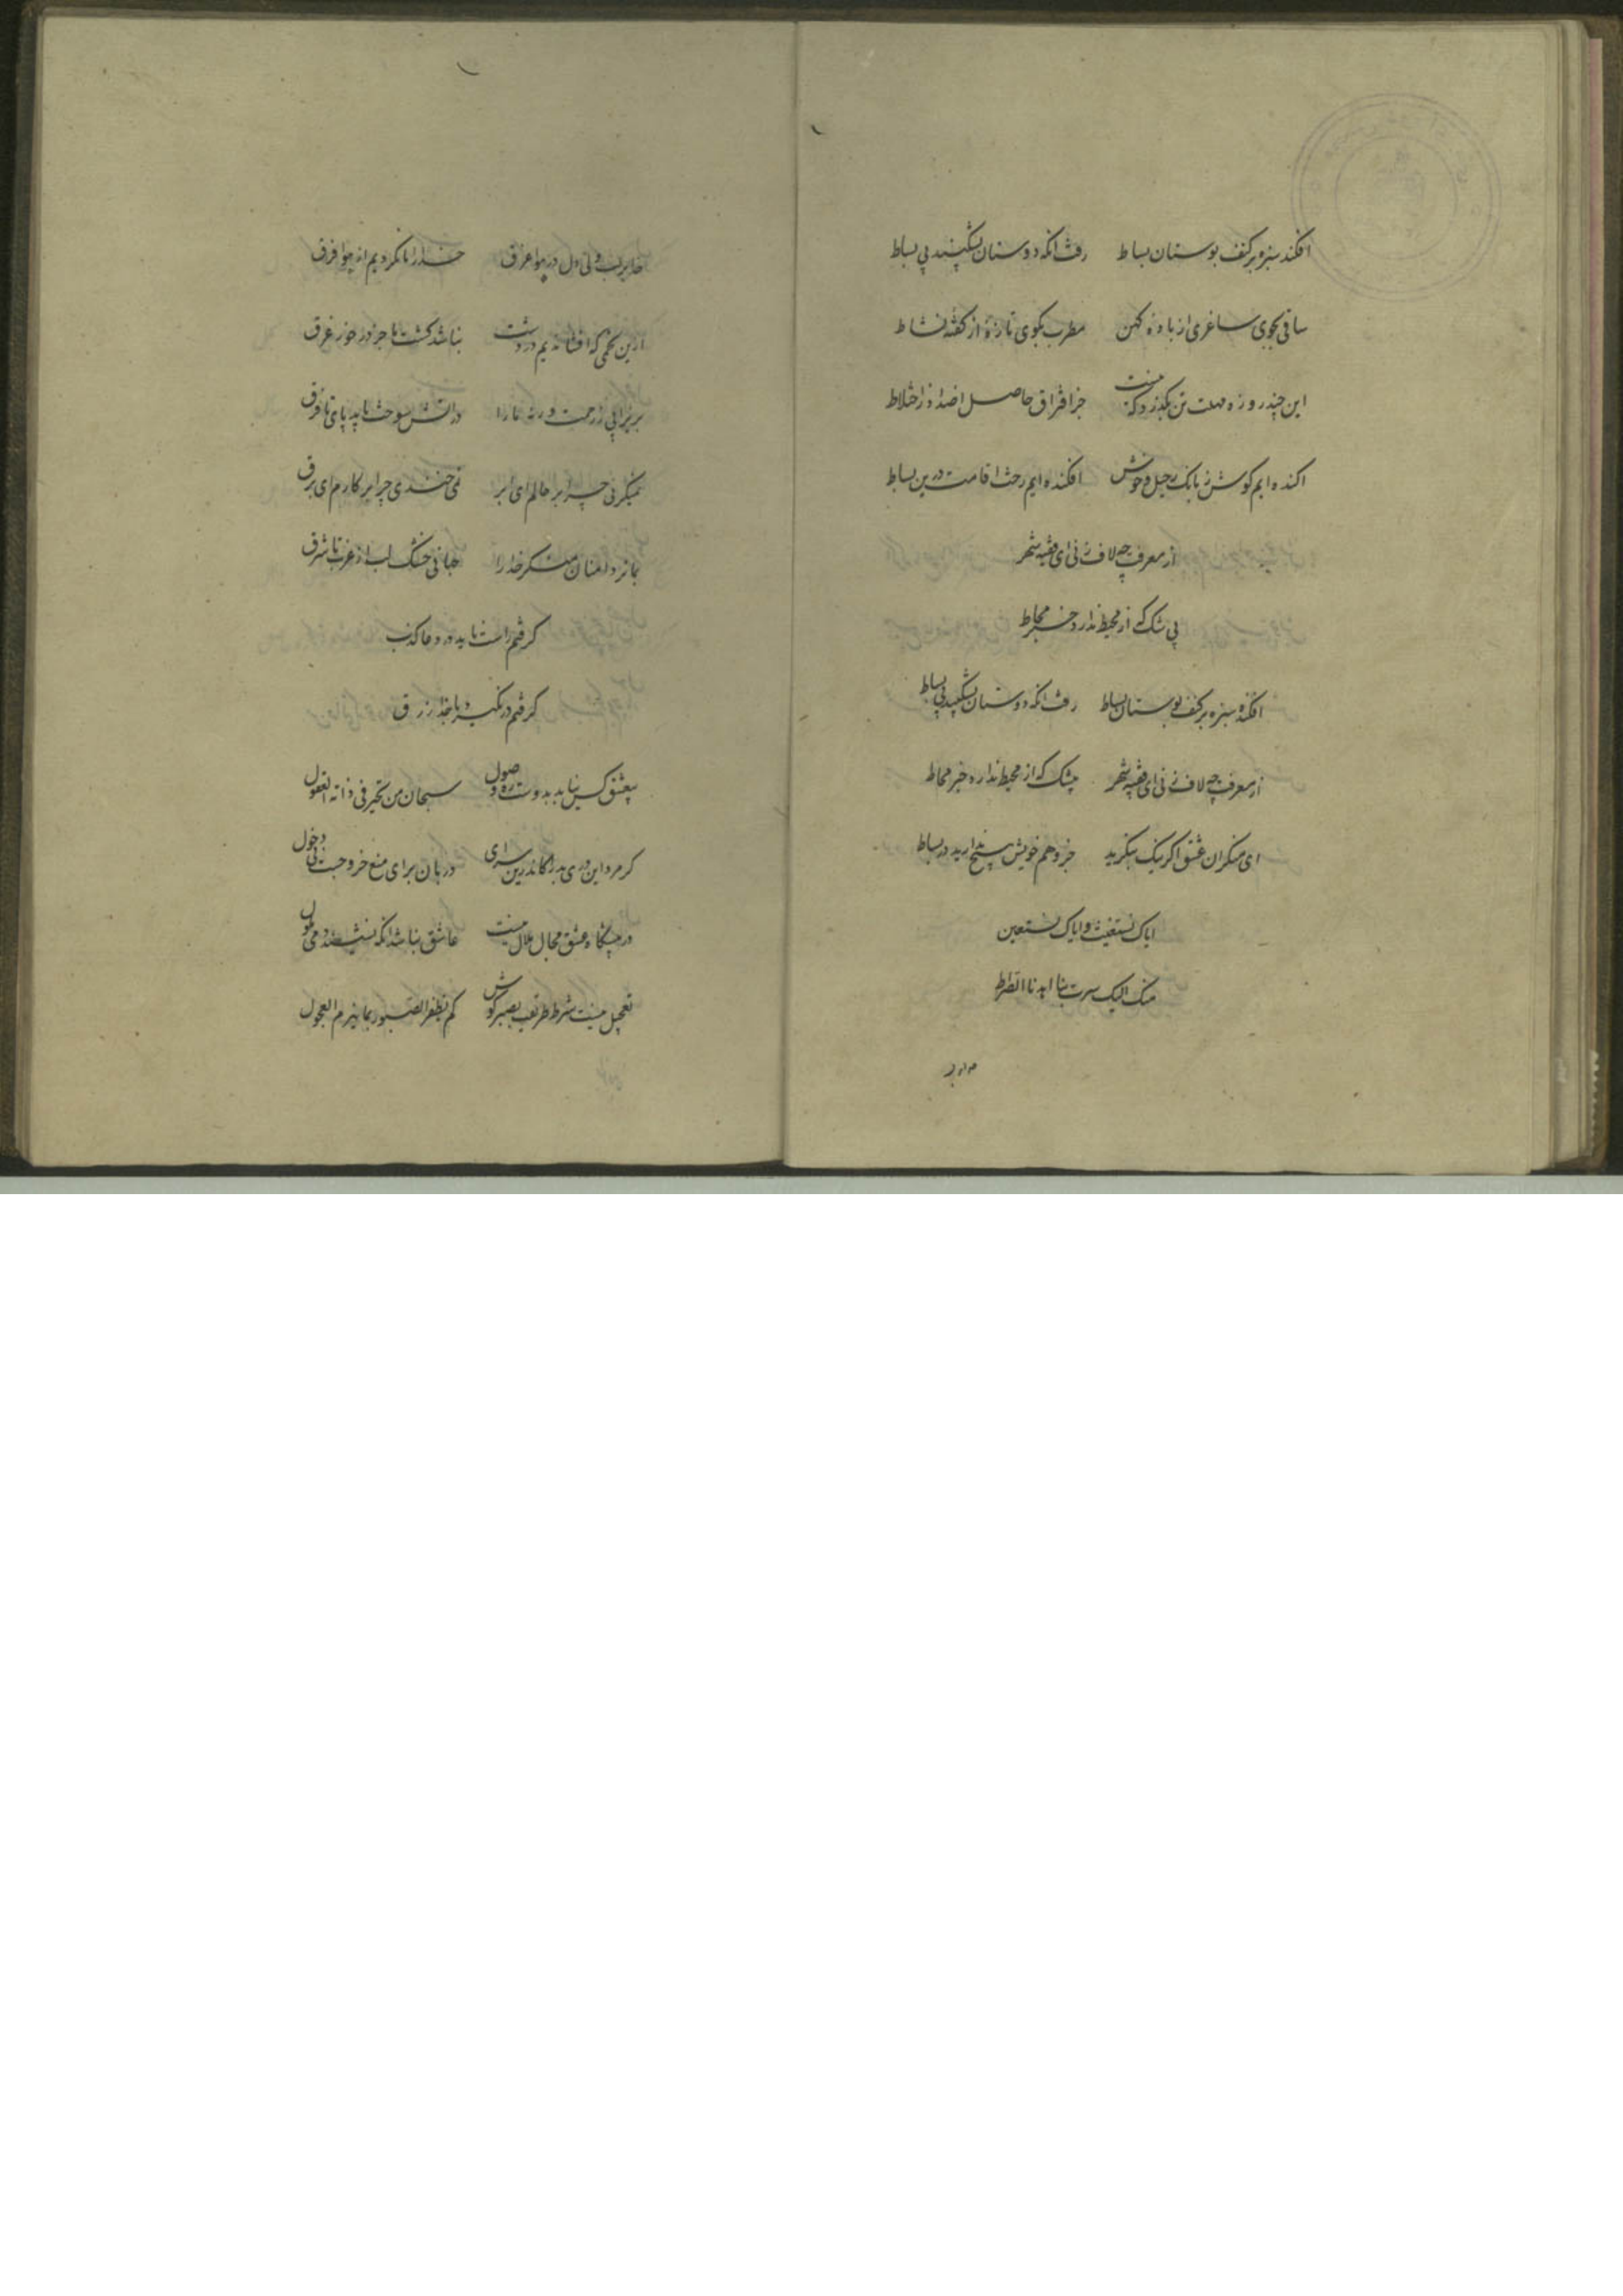 افکند سبزه بر کتف بوستان بساط رفت آنکه دوستان بشکیبند بی بساط
ساقی بجوی ساغری از باده کهن مطرب بکوی تازهٔ از کفته نشاط
این چند روزه مهلت تن بکذرد که نیست جز افتراق حاصل اضداد ز اختلاط
اکنده ایم کوش ز بانک رحیل و خوش افکنده ایم رخت اقامت درین بساط
از معرفت چه لاف زنی ای فقیه شهر
بی شک که از محیط ندارد خبر محاط
افکنده سبزه بر کتف بوستان بساط رفت آنکه دوستان بشکیبند بی بساط
از معرفت چه لاف زنی ای فقیه شهر بیشک که از محیط ندارد خبر محاط
ای منکران عشق اکر نیک بنکرید جز وهم خویش هیچ ندارید در بساط
ایاک نستغیث و ایاک نستعین
منک الیک سرت بنا اهدنا الصراط
خدا بر لب ولی دل در هوا غرق خدا را ما نکردیم از هوا فرق
ازین تخمی که افشاندیم در دشت نباشد کشت ما جز در خور غرق
بر ابی ز رحمت ورنه ما را در آتش سوخت باید پای تا فرق
نمیکریی چرا بر حالم ای ابر نمی خندی چرا بر کارم ای برق
بما تردامنان منکر خدا را جهانی خشک لب از غرب تا شرق
کرفتم راست ناید در دعا کذب
کرفتم در نکیرد با خدا زرق
بیعشق کس نیابد بدوست ره وصول سبحان من تحیر فی ذاته العقول
کر مرد این دری بدرا کاندرین سرای دربان برای منع خروجست نی دخول
در پیشکاه عشق مجال ملال نیست عاشق نباشد آنکه نشیند دمی ملول
تعجیل نیست شرط طریقت بصبر کوش کم یظفر الصبور بما یهزم العجول